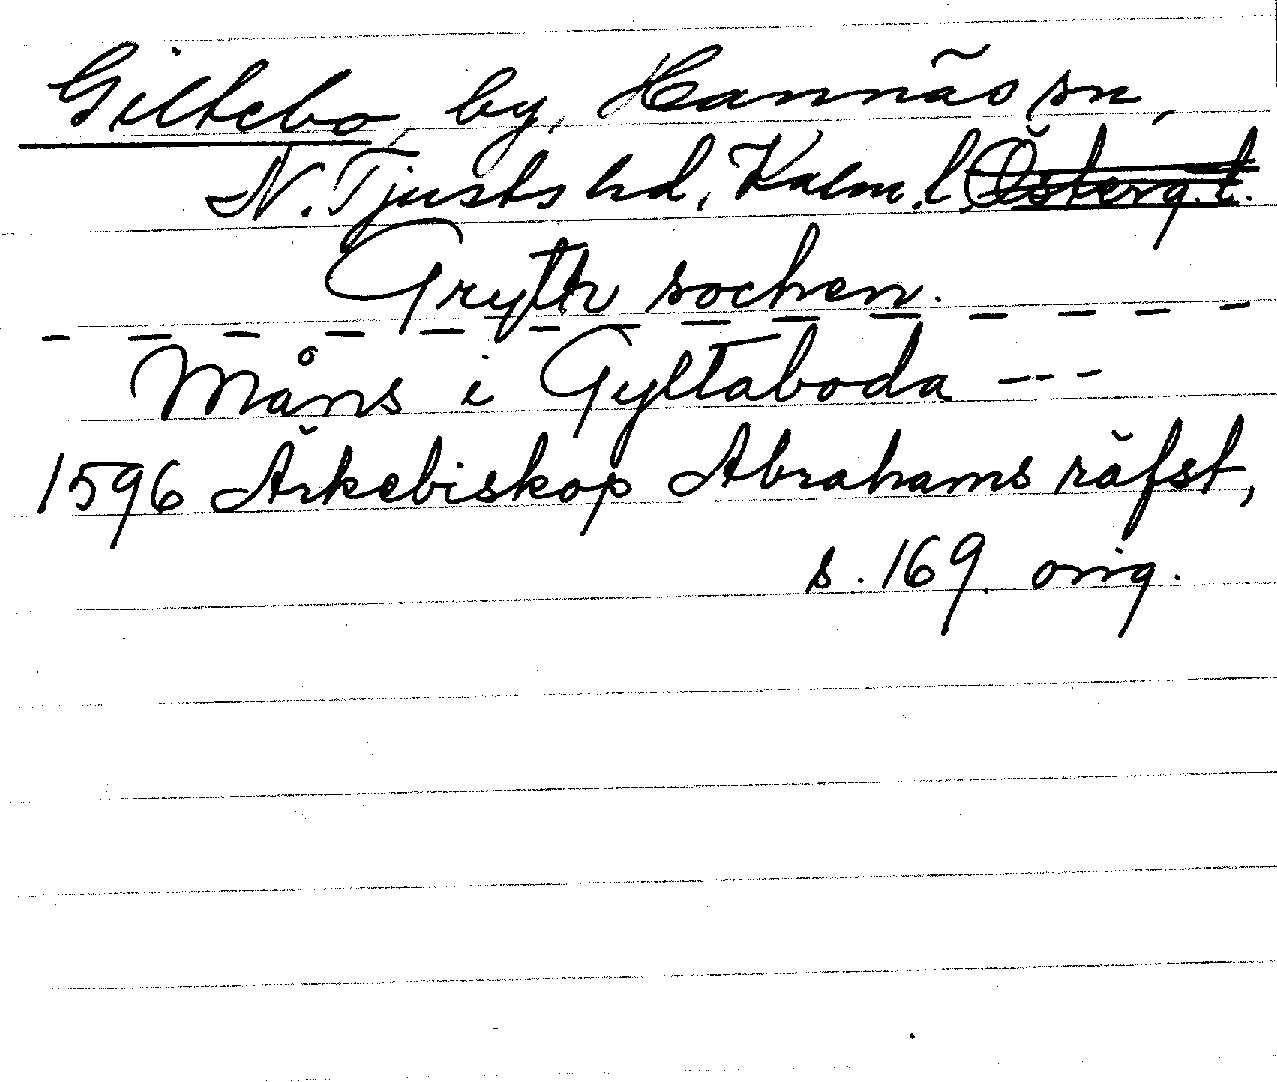 Giltebo, by, Hannäs sn,
N. Tjusts hd, Kalm. l. Österg. l.
Gryth sochen.
– – – – – – – – – – – – –
Måns i Gyltaboda ---
1596 Ärkebiskop Abrahams räfst,
s. 169. orig.